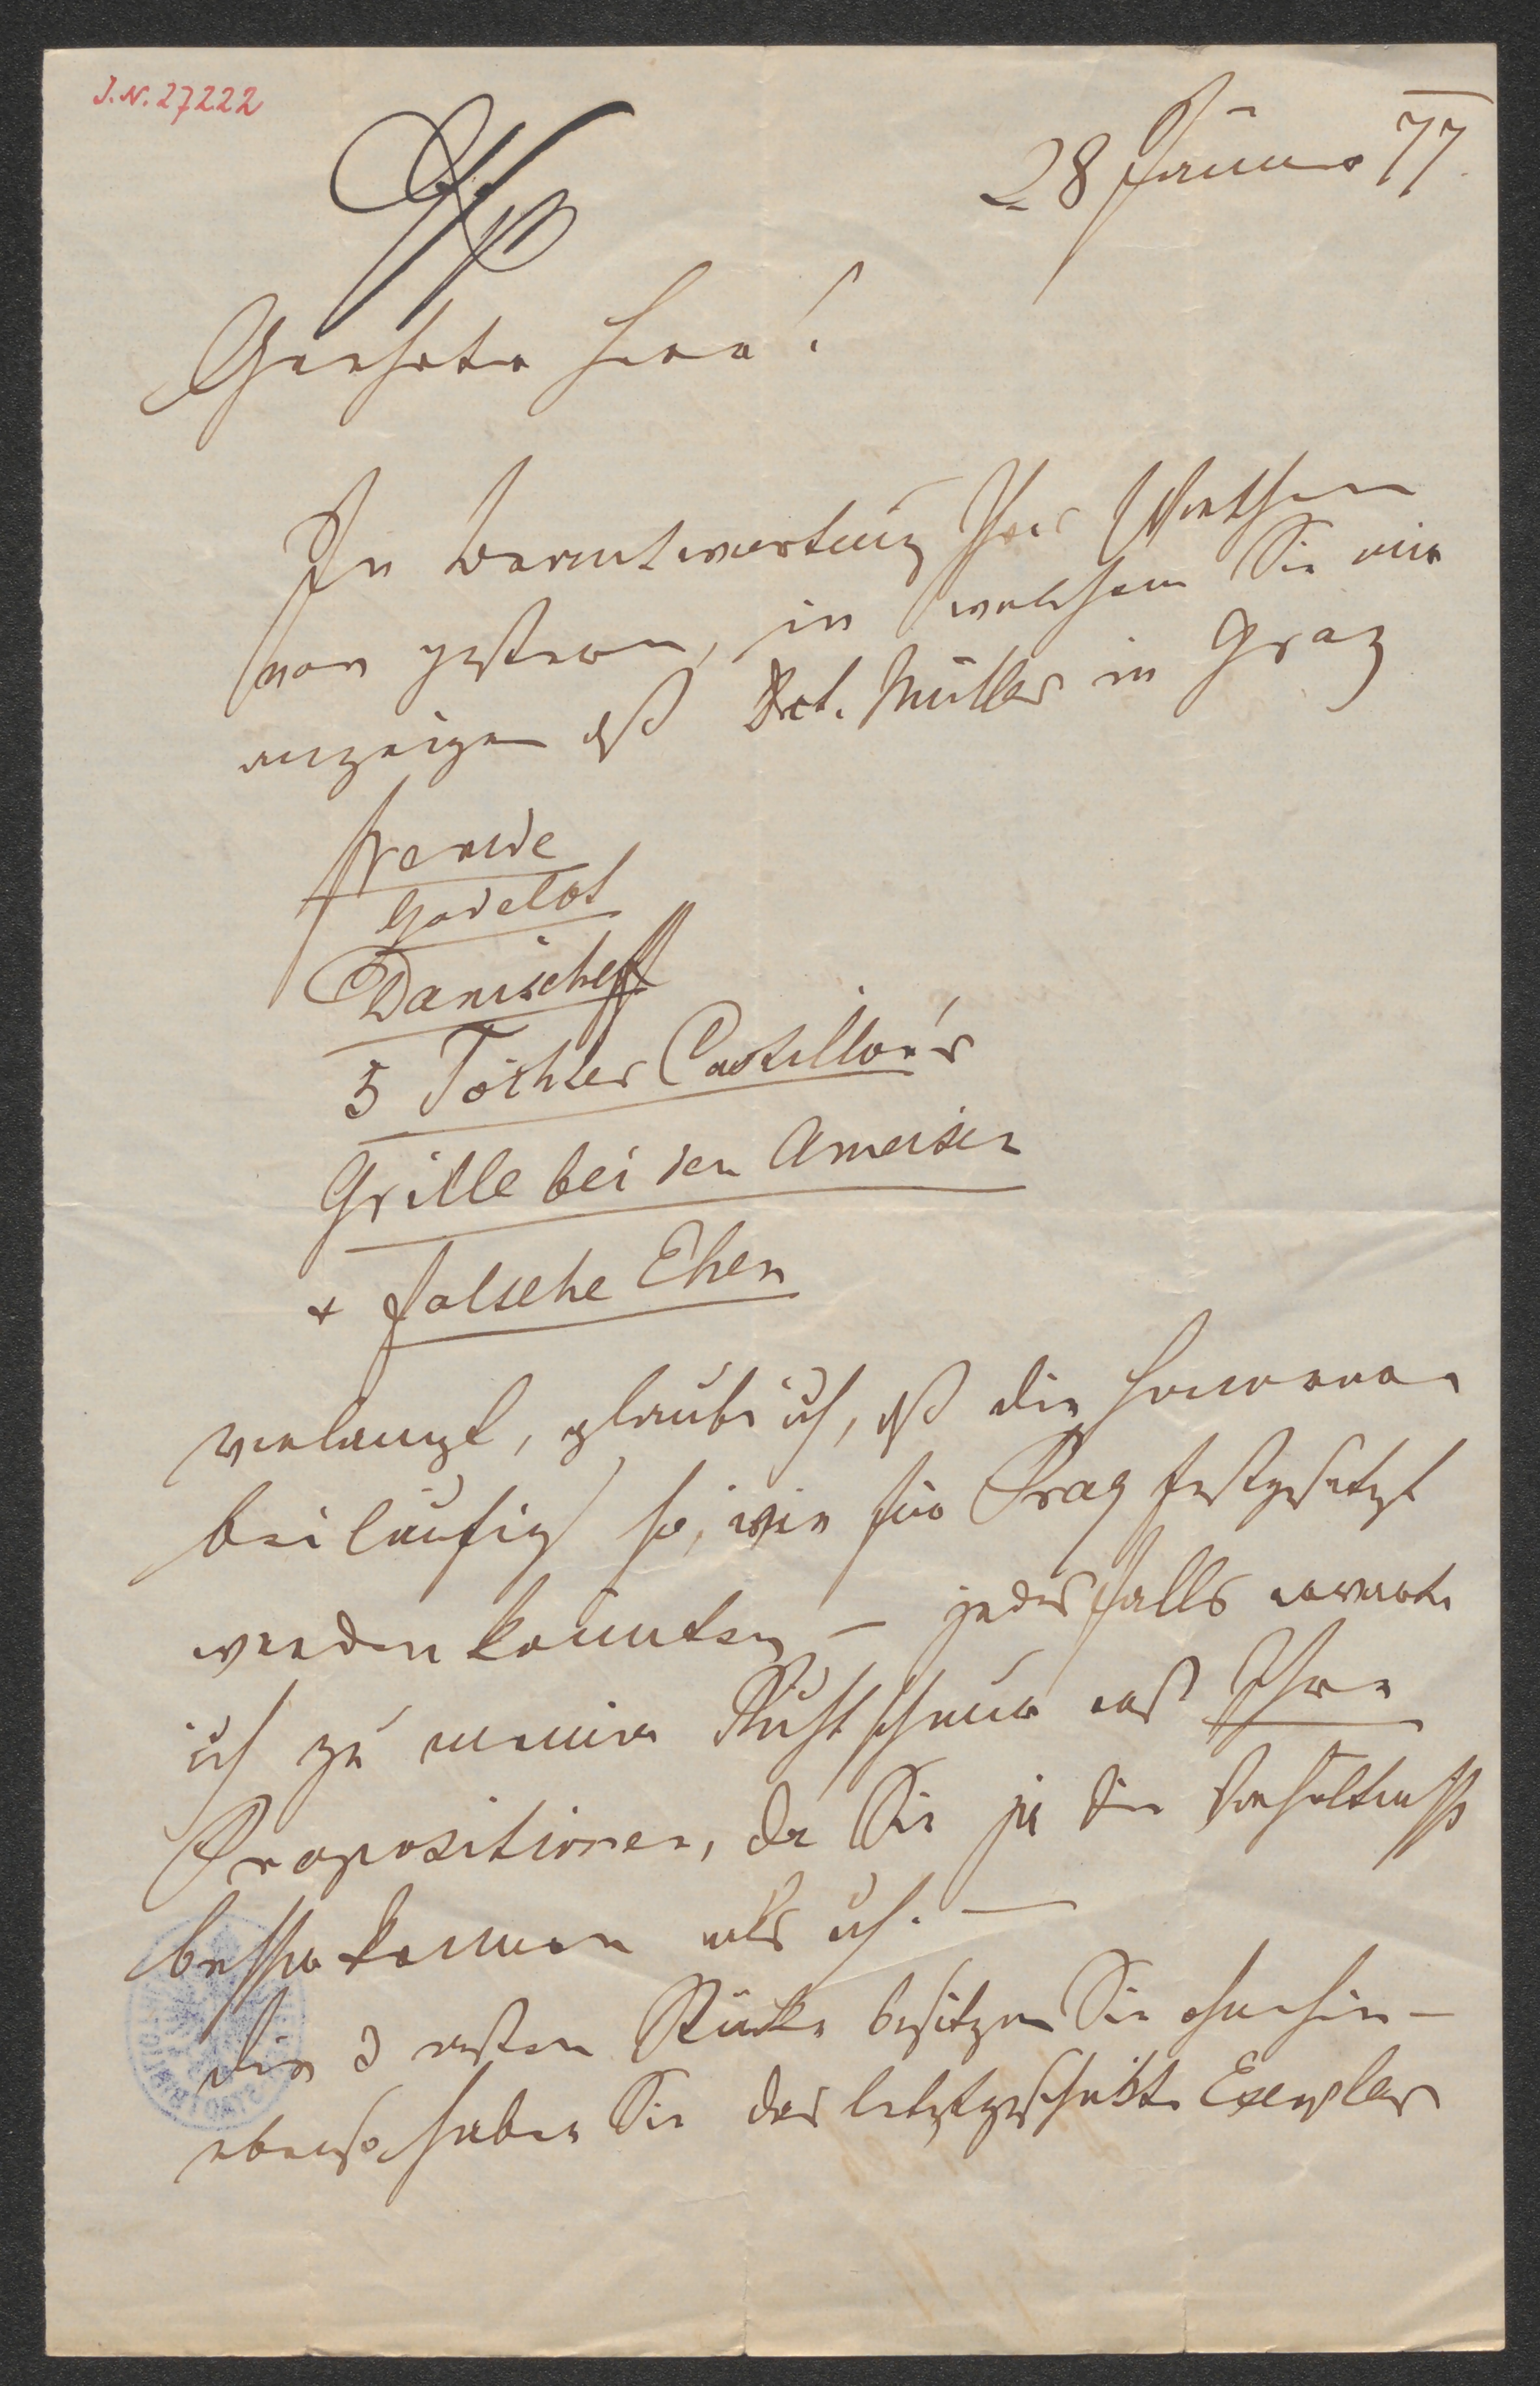 J.N. 27222
28 Jänner 77.
Geehrter Herr!
In Beantwortung Ihres Werthen
von gestern, in welchem Sie mir
anzeigen dß Dct. Müller in Graz
Fremde
Godelot
Danischeff
5 Töchter Castillon's
Grille bei den Ameisen
+ falsche Ehen
verlangt, glaube ich, dß die Honorare
beiläufig so, wie für Prag festgesetzt
werden könnten, – jedesfalls erwarte
ich zu meiner Richtschnur erst Ihre
Propositionen, da Sie ja die Verhältnisse
besser kennen als ich. –
Die 3 ersten Stücke besitzen Sie ohnehin –
ebenso haben Sie das letztgeschickte Exemplar